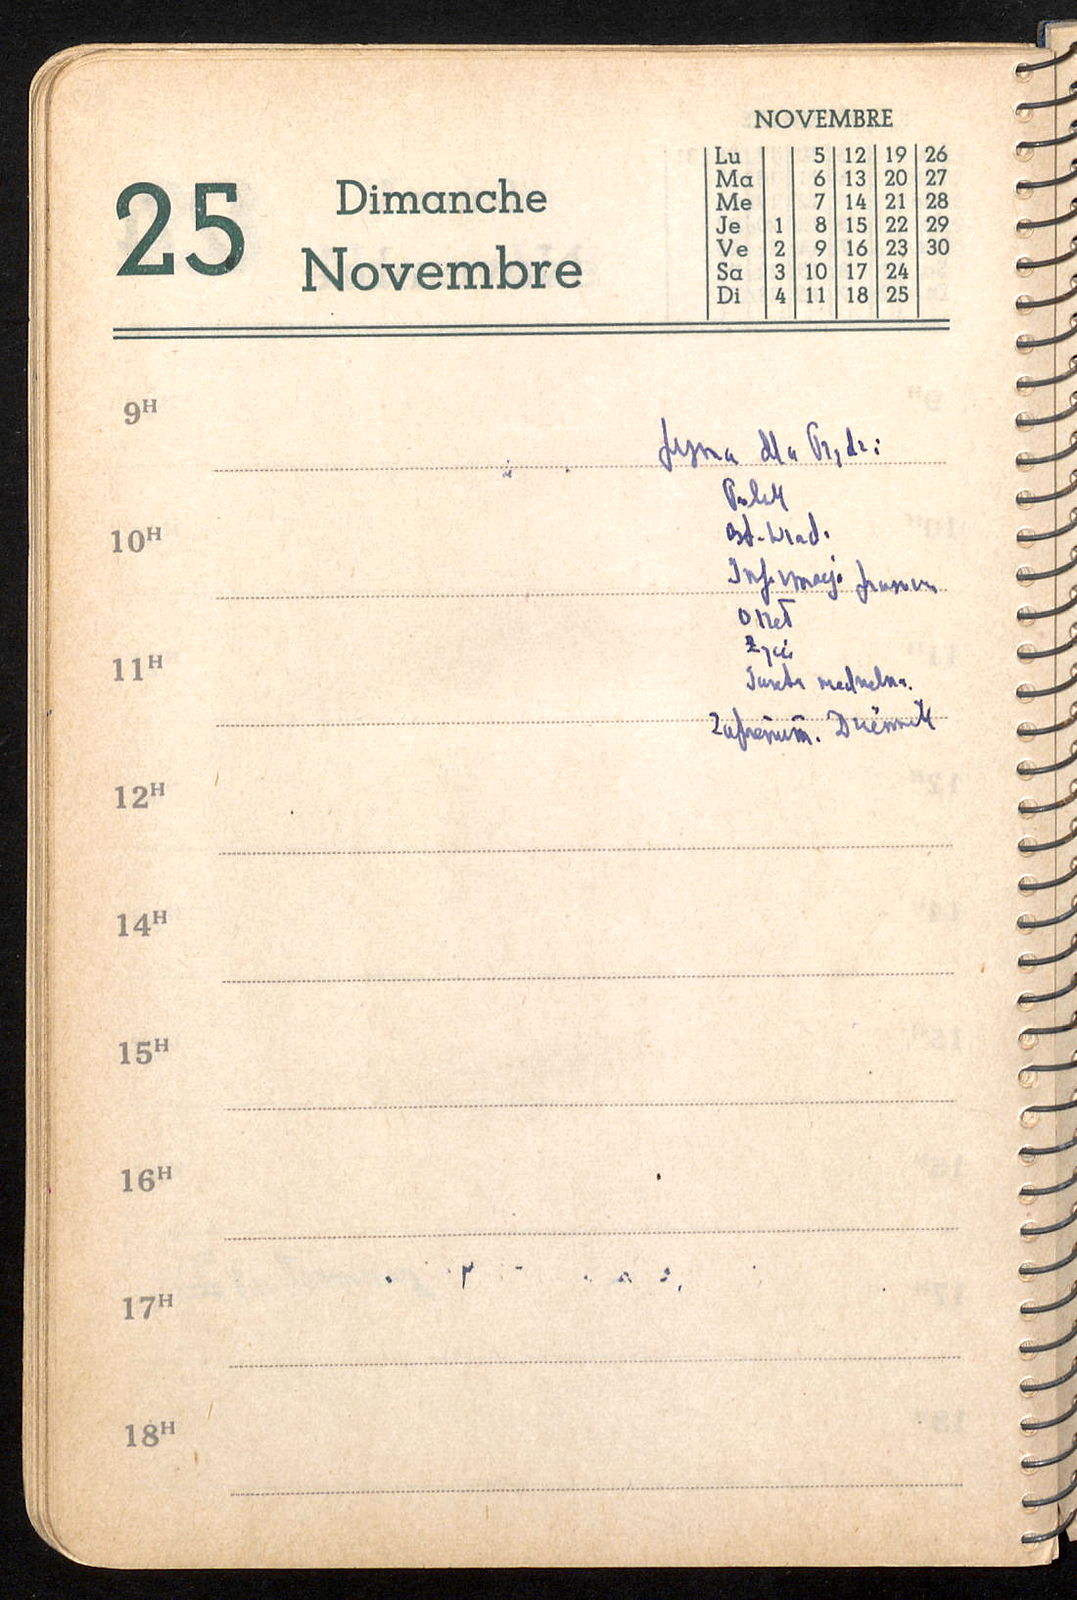 NOVEMBRE
25 Dimanche
Novembre
Lu 5 12 19 26
Ma 6 13 20 27
Me 7 14 21 28
Je 1 8 15 22 29
Ve 2 9 16 23 30
Sa 3 10 17 24
Di 4 11 18 25
9H
dla
10H
Ost. Wiad.
Informacje
Orzeł
11H
Życie
niedzielna.
Dziennik
12H
14H
15H
16H
17H
18H